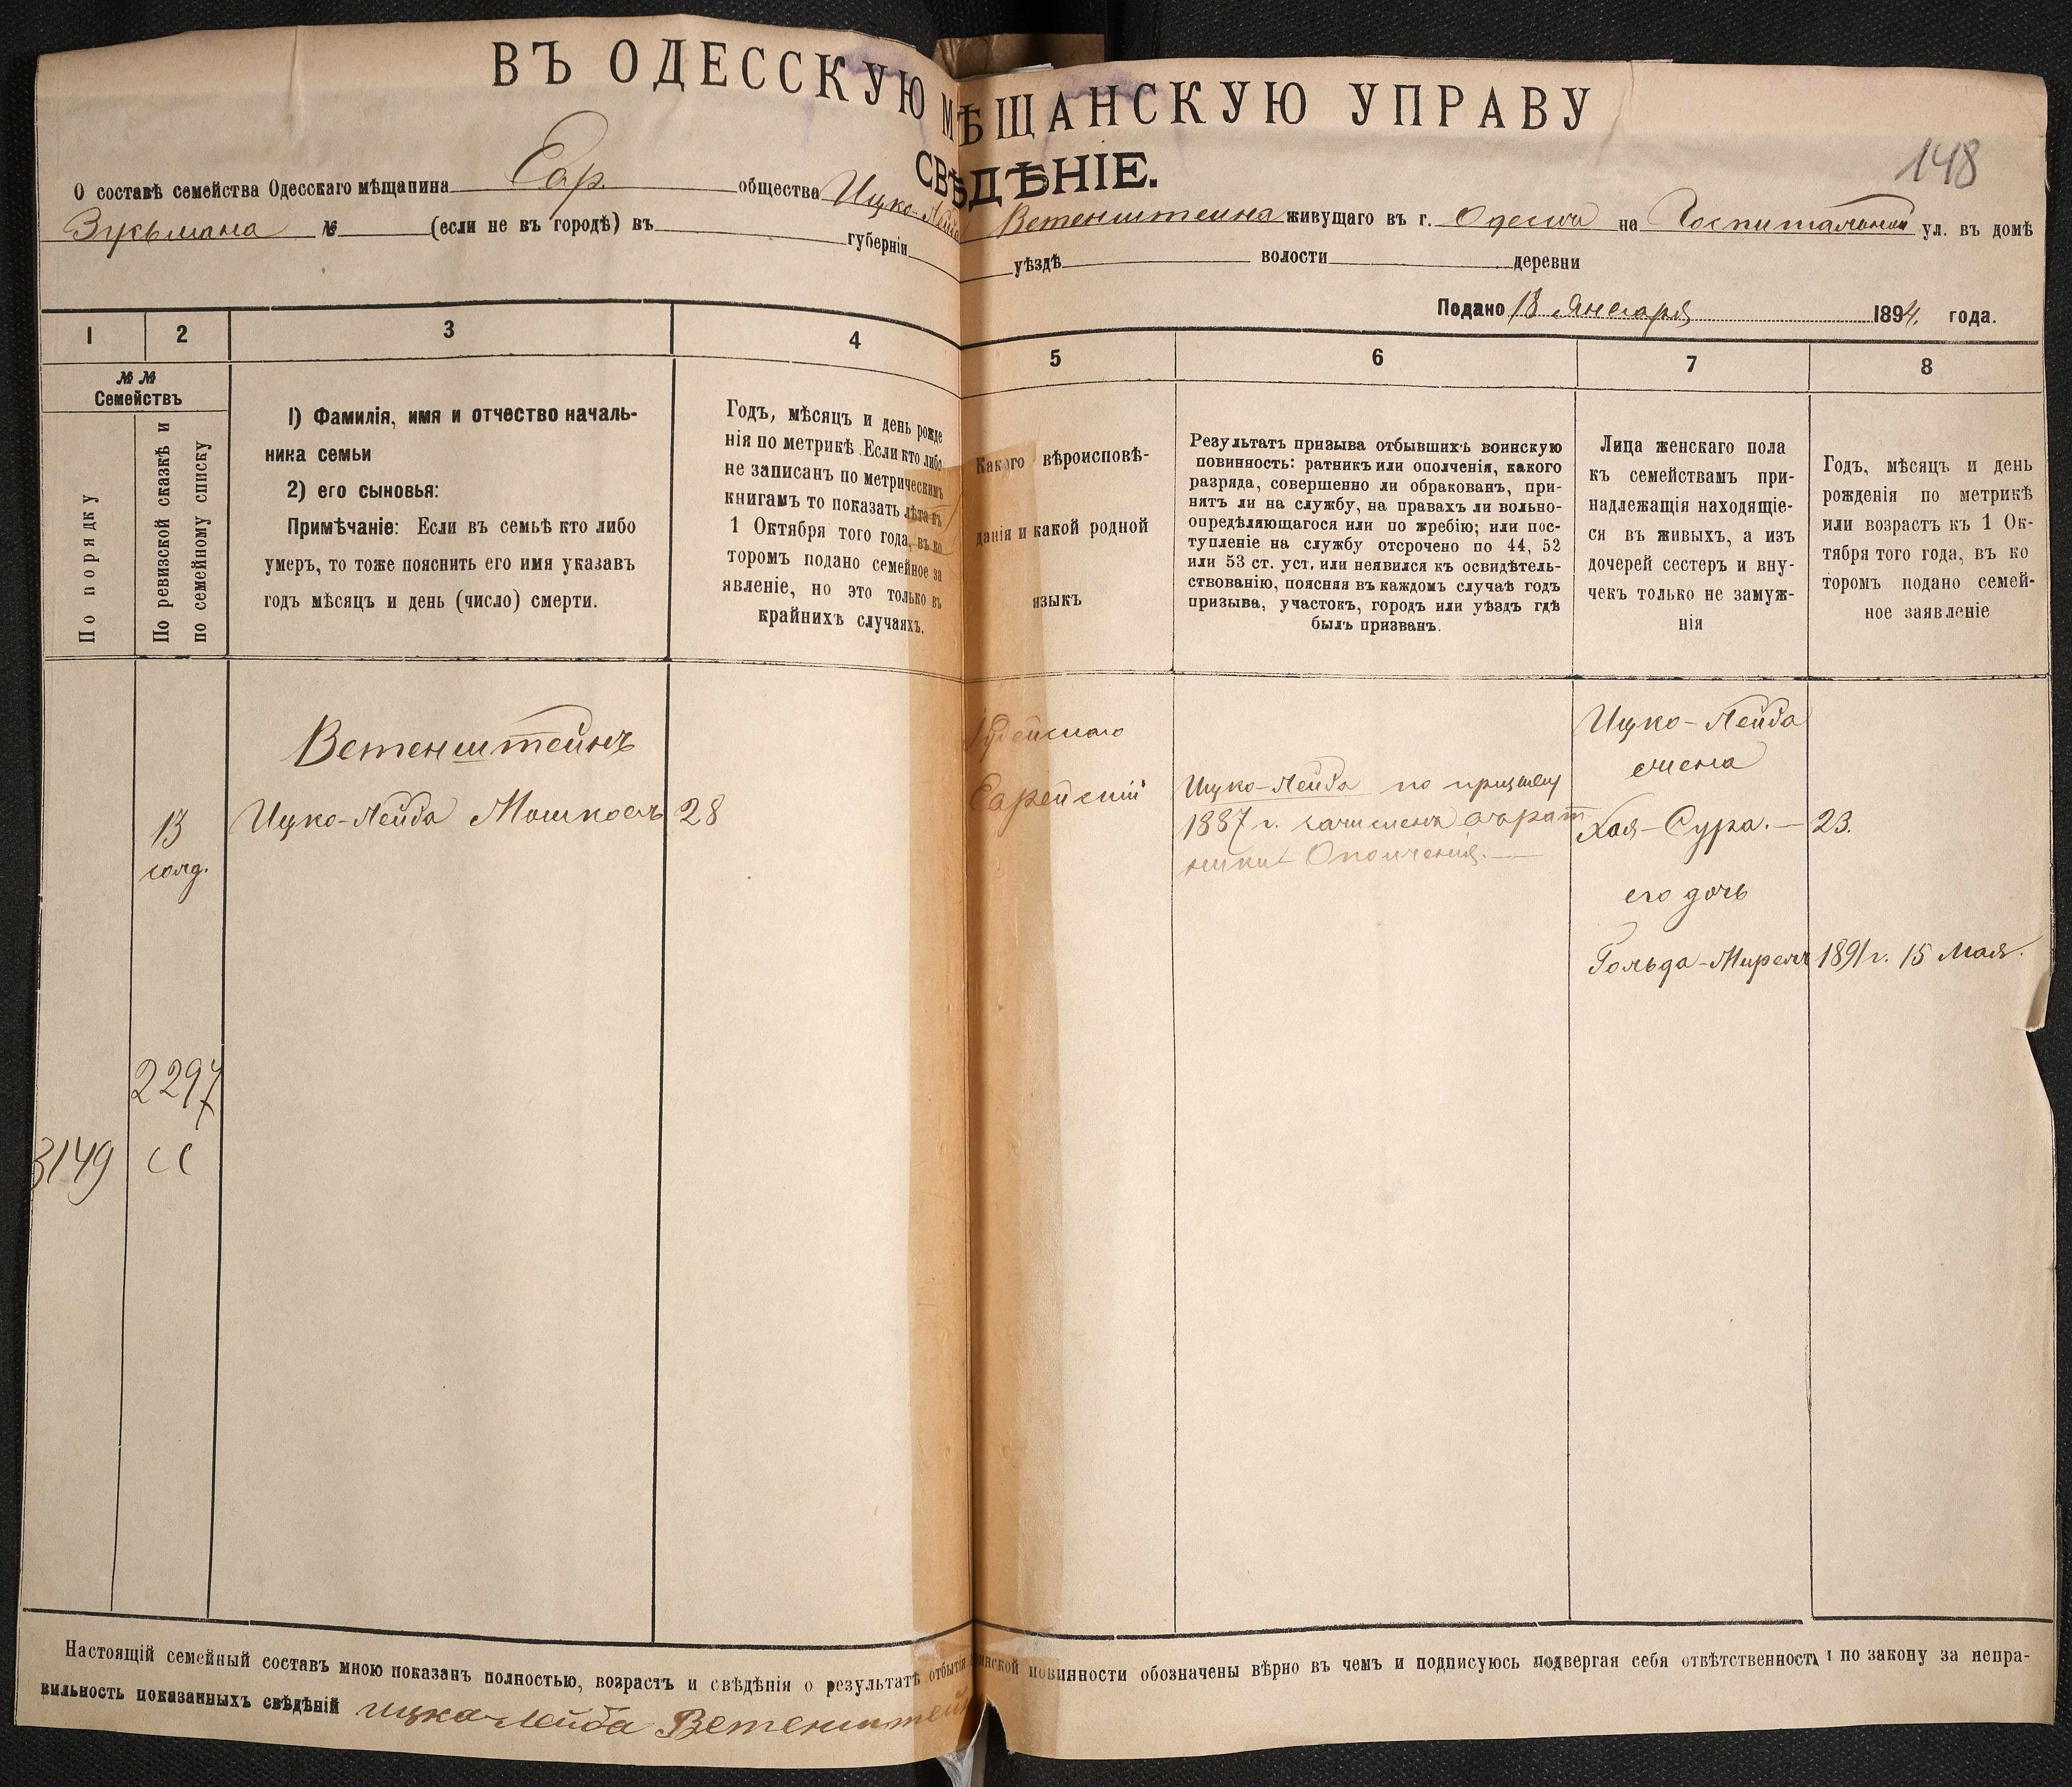 ВЪ ОДЕССКУЮ МѢЩАНСКУЮ УПРАВУ
148
СВѢДѢНІЕ.
О составѣ семейства Одесскаго мѣщанина Евр. общества Ицко-Лейба Ветенштейна живущаго въ г. Одесса на Госпитальной ул. въ домѣ
Зукьмана № (если не въ городѣ) въ губерніи уѣздѣ волости деревни
Подано 13 Января 1894 года.
1 2 3 4 5 6 7 8
№ №
Семействъ
По порядку
По ревизской сказкѣ и
по семейному списку
1) Фамилія, имя и отчество началь-
ника семьи
2) его сыновья:
Примѣчаніе: Если въ семьѣ кто либо
умеръ, то тоже пояснить его имя указавъ
годъ мѣсяцъ и день (число) смерти.
Годъ, мѣсяцъ и день рожде
нія по метрикѣ. Если кто либо
не записанъ по метрическимъ
книгамъ то показать лѣта въ
1 Октября того года, въ ко
торомъ подано семейное за
явленіе, но это только въ
крайнихъ случаяхъ.
Какого вѣроисповѣ-
данія и какой родной
языкъ
Результатъ призыва отбывшихъ воинскую
повинность: ратникъ или ополченія, какого
разряда, совершенно ли обракованъ, при-
нятъ ли на службу, на правахъ ли вольно-
опредѣляющагося или по жребію; или пос-
тупленіе на службу отсрочено по 44, 52
или 53 ст. уст. или неявился къ освидѣтель-
ствованію, поясняя въ каждомъ случаѣ годъ
призыва, участокъ, городъ или уѣздъ гдѣ
былъ призванъ.
Лица женскаго пола
къ семействамъ при-
надлежащія находящіе-
ся въ живыхъ, а изъ
дочерей сестеръ и вну-
чекъ только не замуж-
нія
Годъ, мѣсяцъ и день
рожденія по метрикѣ
или возрастъ къ 1 Ок-
тября того года, въ ко
торомъ подано семей-
ное заявленіе
Ветенштейнъ
13
солд.
Ицко-Лейба Мошковъ
28
Іудейскаго
Еврейскій
Ицко-Лейба по призыву
1887 г. зачисленъ въ рат
ники Ополченія.
Ицко-Лейба
жена
Хая-Сура. — 23.
его дочь
Гольда-Мирель 1891 г. 15 Мая.
2297
3149 СС
Настоящій семейный составъ мною показанъ полностью, возрастъ и свѣдѣнія о результатѣ отбытія воинской повинности обозначены вѣрно въ чемъ и подписуюсь подвергая себя отвѣтственности по закону за непра-
вильность показанныхъ свѣдѣній ицка-Лейба Ветенштейн